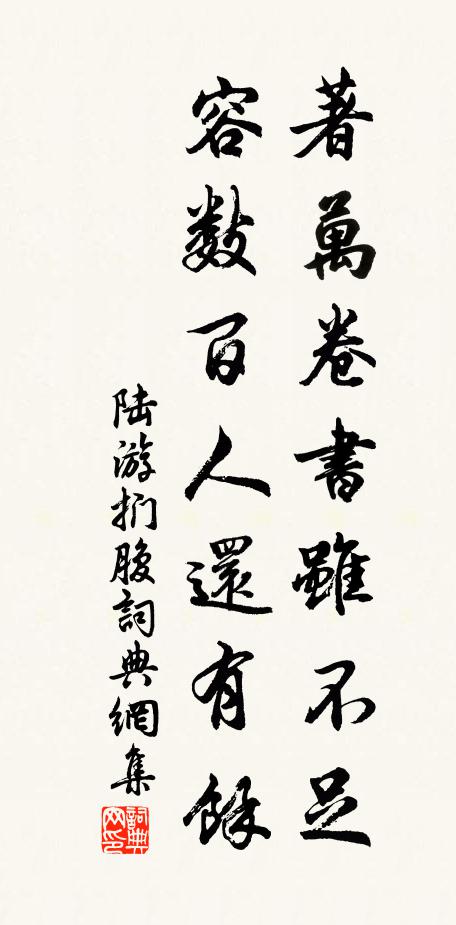 著萬卷書雖不足
容數百人還有餘
陸游捫腹詞典網集
詞典网印